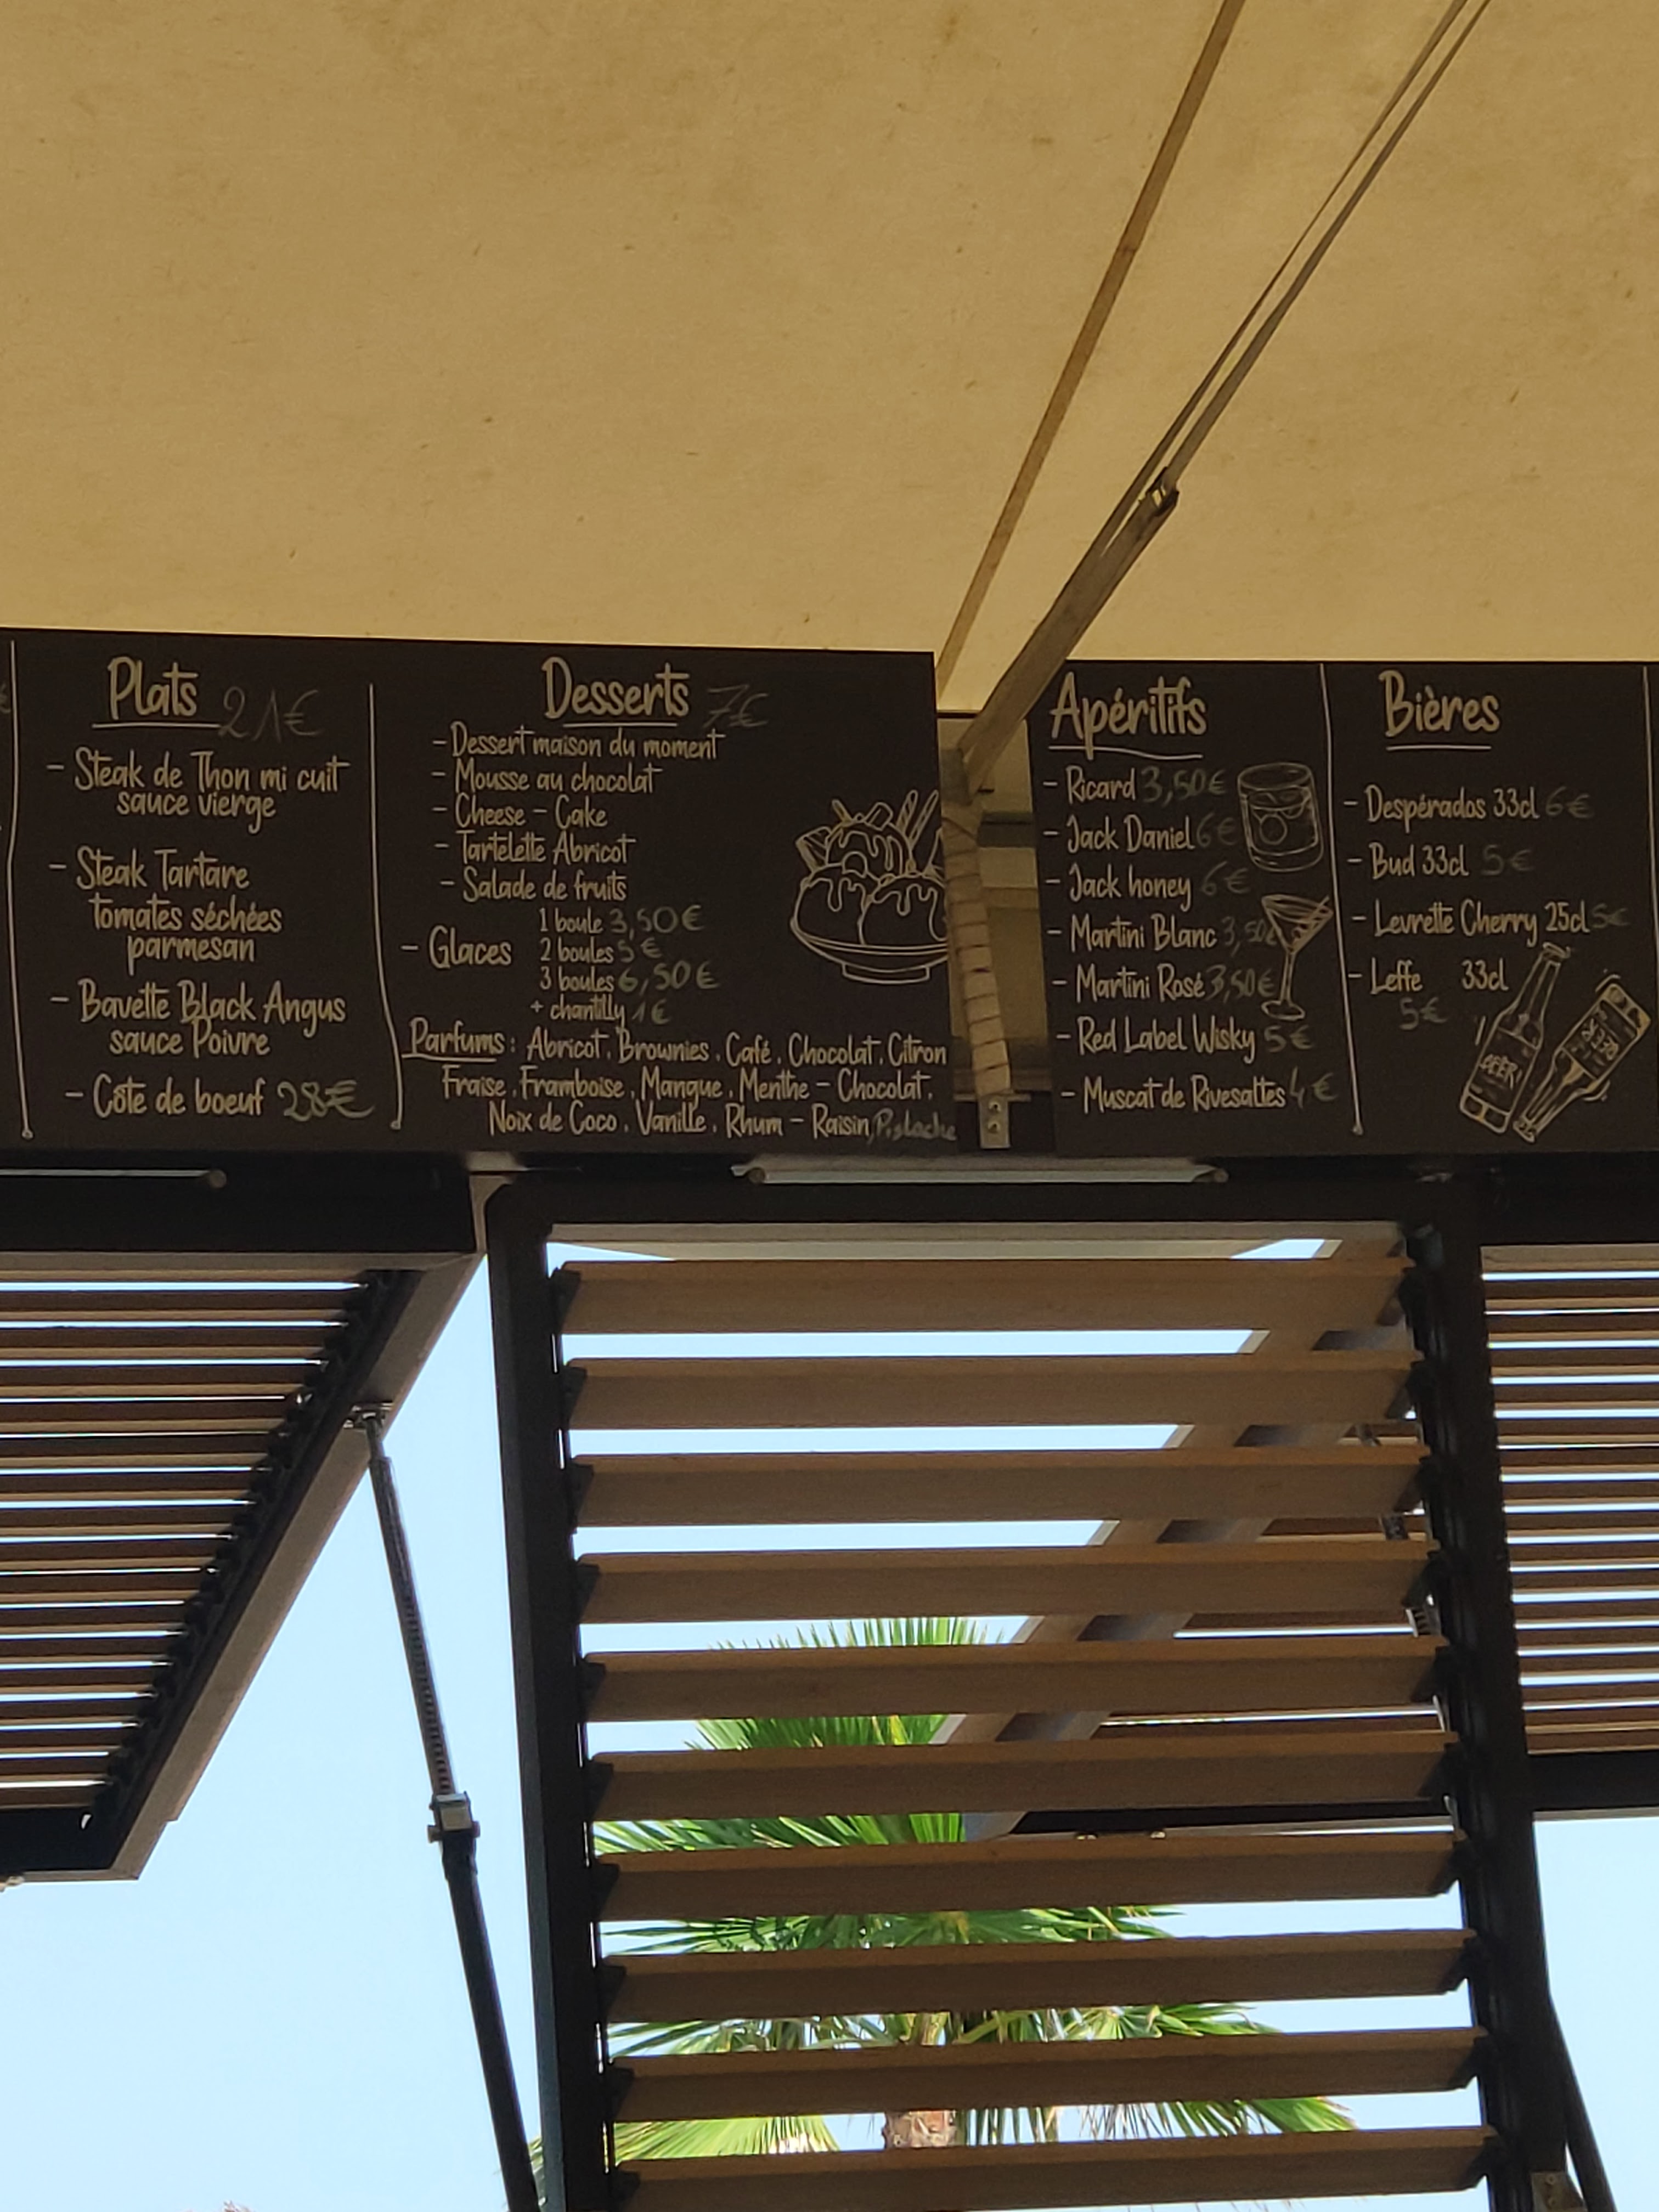 Plats 21€
- Steak de Thon mi cuit
sauce vierge
- Steak Tartare
tomates séchées
parmesan
- Bavette Black Angus
sauce Poivre
- Côte de boeuf 28€
Desserts 7€
- Dessert maison du moment
- Mousse au chocolat
- Cheese - Cake
- Tartelette Abricot
- Salade de fruits
- Glaces
1 boule 3,50€
2 boules 5€
3 boules 6,50€
+ chantilly 1€
Parfums : Abricot, Brownies, Café, Chocolat, Citron
Fraise, Framboise, Mangue, Menthe - Chocolat,
Noix de Coco, Vanille, Rhum - Raisin, Pistache
Apéritifs
- Ricard 3,50€
- Jack Daniel 6€
- Jack honey 6€
- Martini Blanc 3,50€
- Martini Rosé 3,50€
- Red Label Wisky 5€
- Muscat de Rivesaltes 4€
Bières
- Despérados 33cl 6€
- Bud 33cl 5€
- Levrette Cherry 25cl 5€
- Leffe 33cl
5€
BEER
BEER